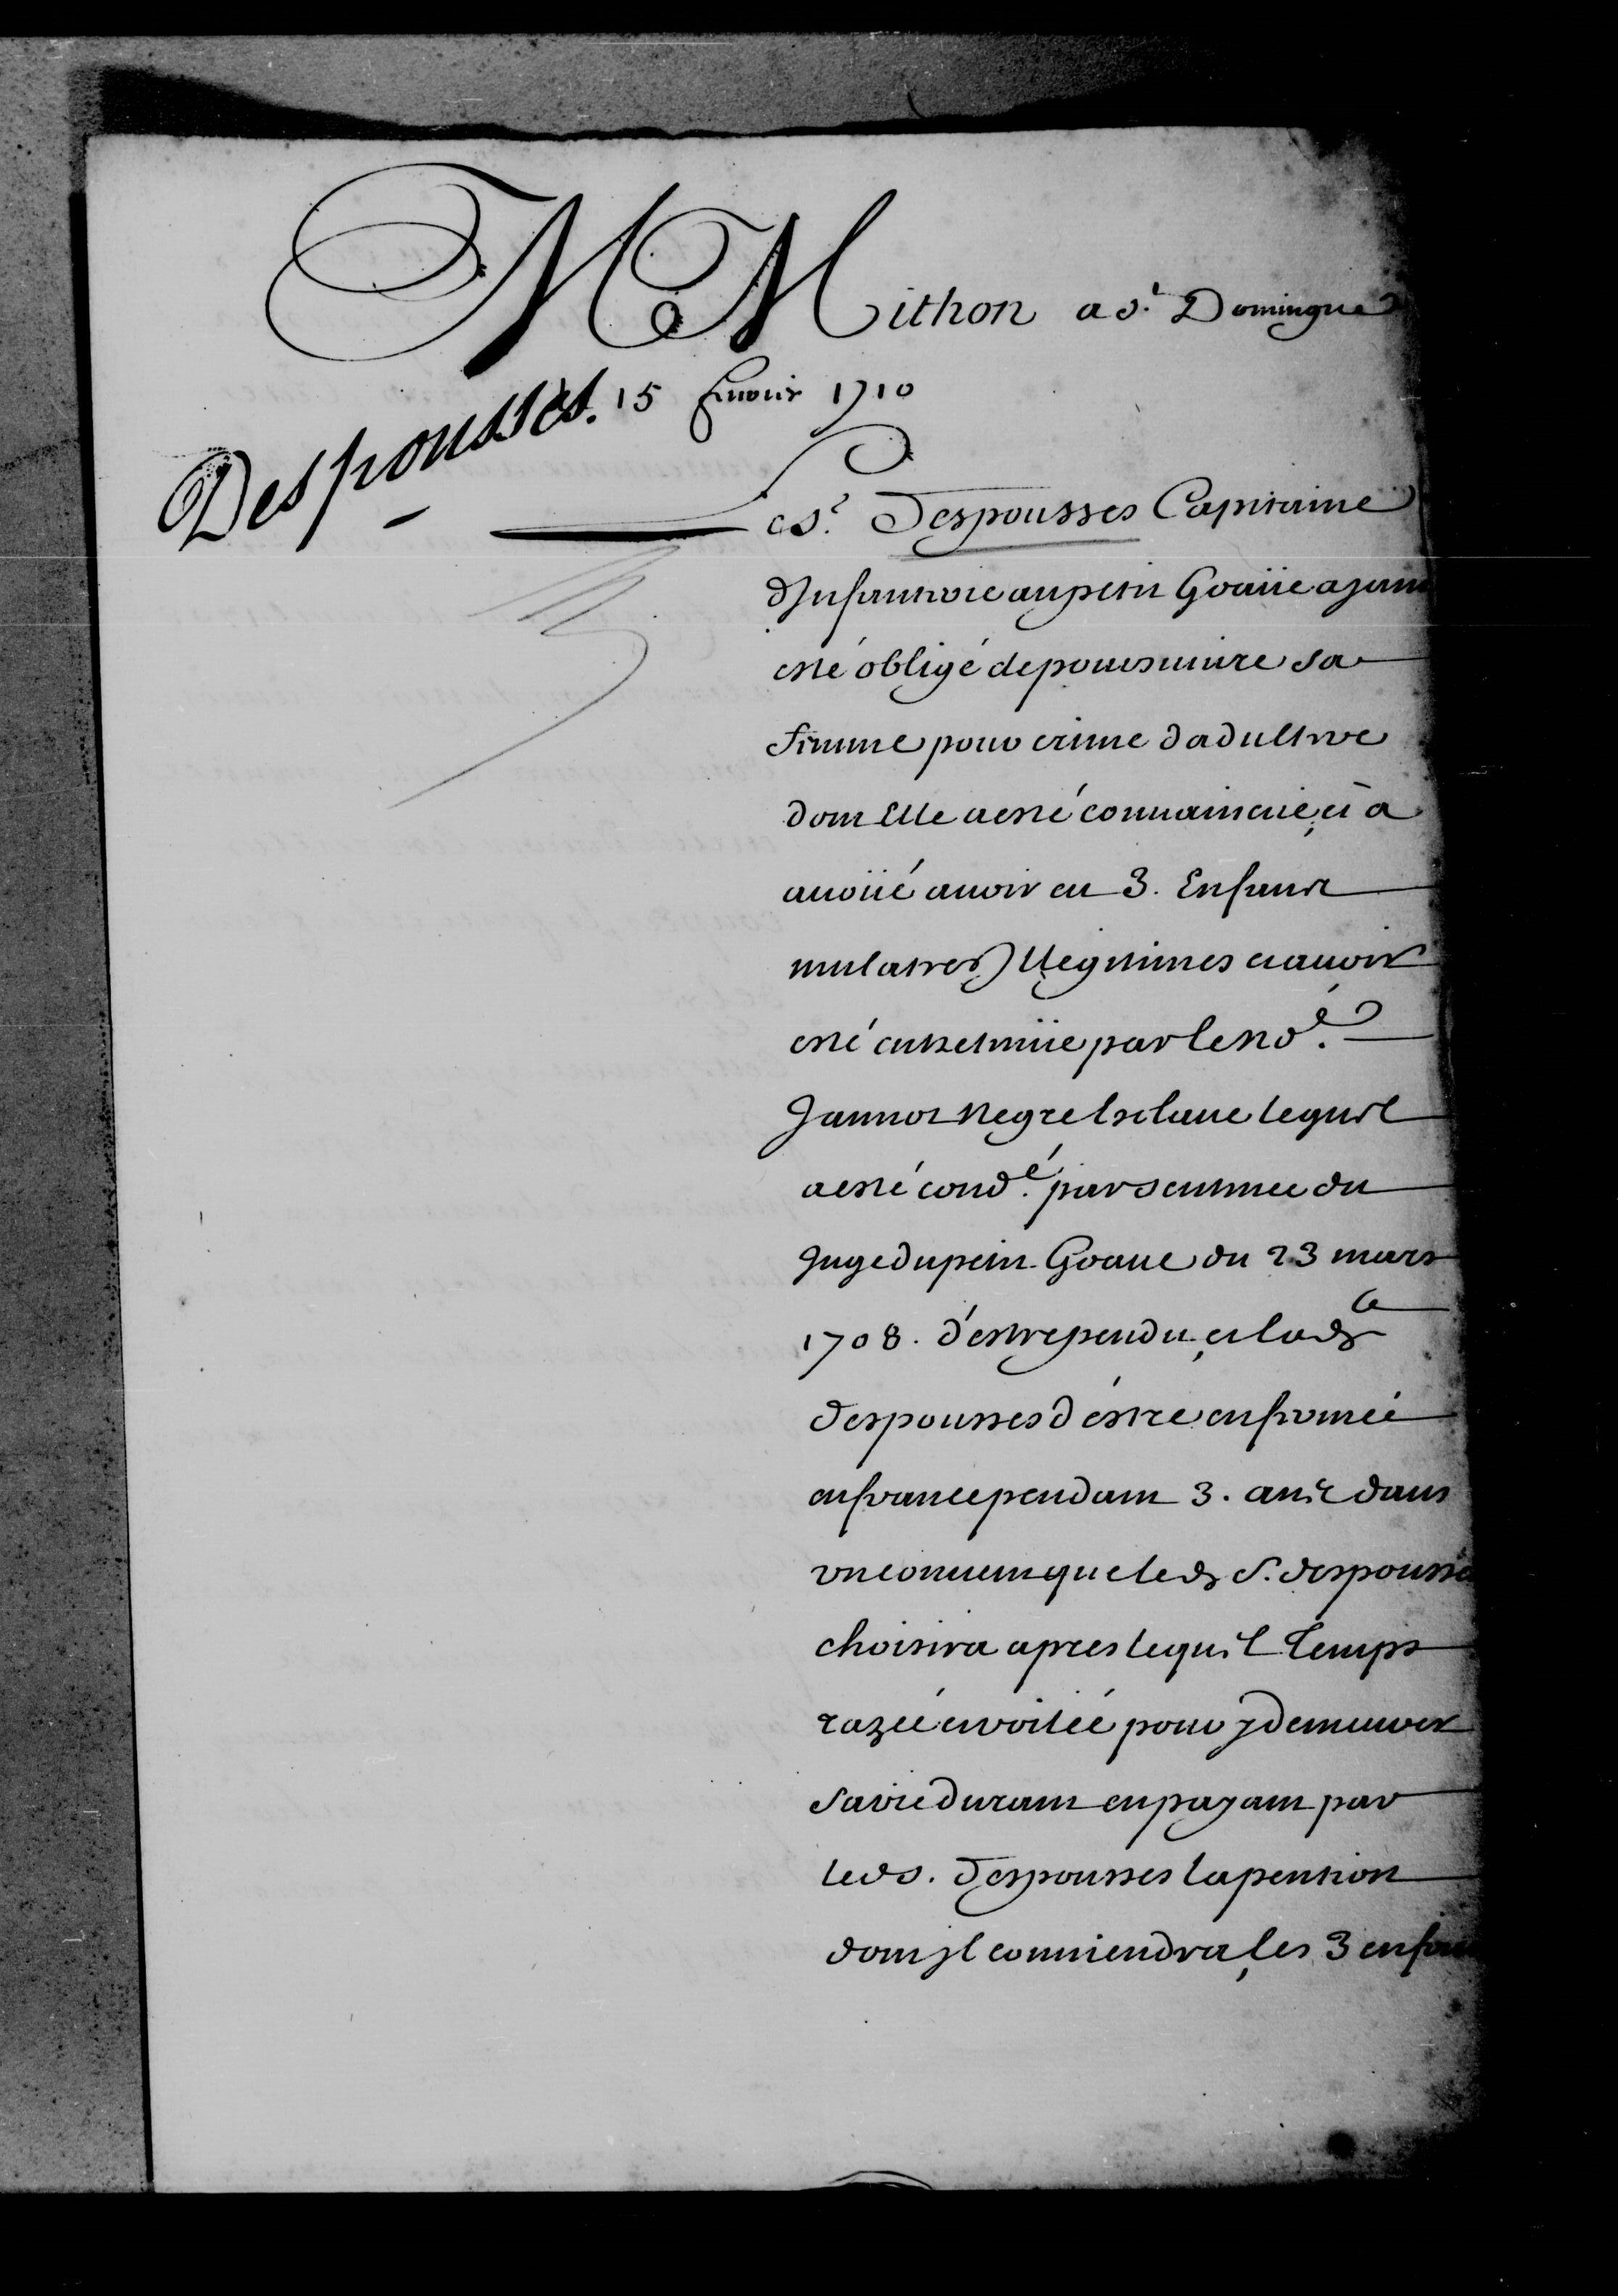 M. Mithon a St. Domingue
15 Feurier 1710
Despousses.
Le Sr. Despousses Capitaine
d'Infanterie au petit Goaüe ayant
esté obligé de poursuiure sa
femme pour crime d'adultere
dont Elle a esté conuaincüe, et a
auoüé auoir eu 3. Enfans
mulatres Illegitimes et auoir
esté entretenüe par le no.é
Jannot Negre Esclaue lequel
a esté cond.é par sentence du
Juge du petit Goaue du 23 mars
1708. d'estre pendu, et lad.e
despousses d'éstre enfermeé
en france pendant 3. ans dans
vn conuent que led. S. despousses
choisira apres lequel temps
razeé et voileé pour y demeurer
sa vie durant en payant par
led. S. Despousses la pention
dont jl conuiendra, les 3 enfans